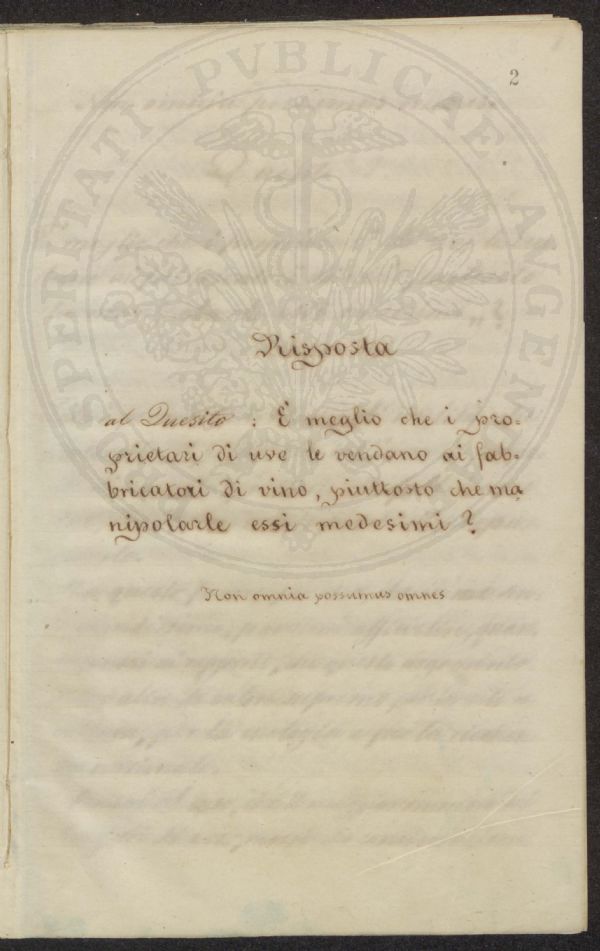 2
PROSPERITATI PVBLICAE AVGENDAE
Risposta
al Quesito : È meglio che i pro=
prietari di uve le vendano ai fab=
bricatori di vino, piuttosto che ma
nipolarle essi medesimi ?
Non omnia possumus omnes